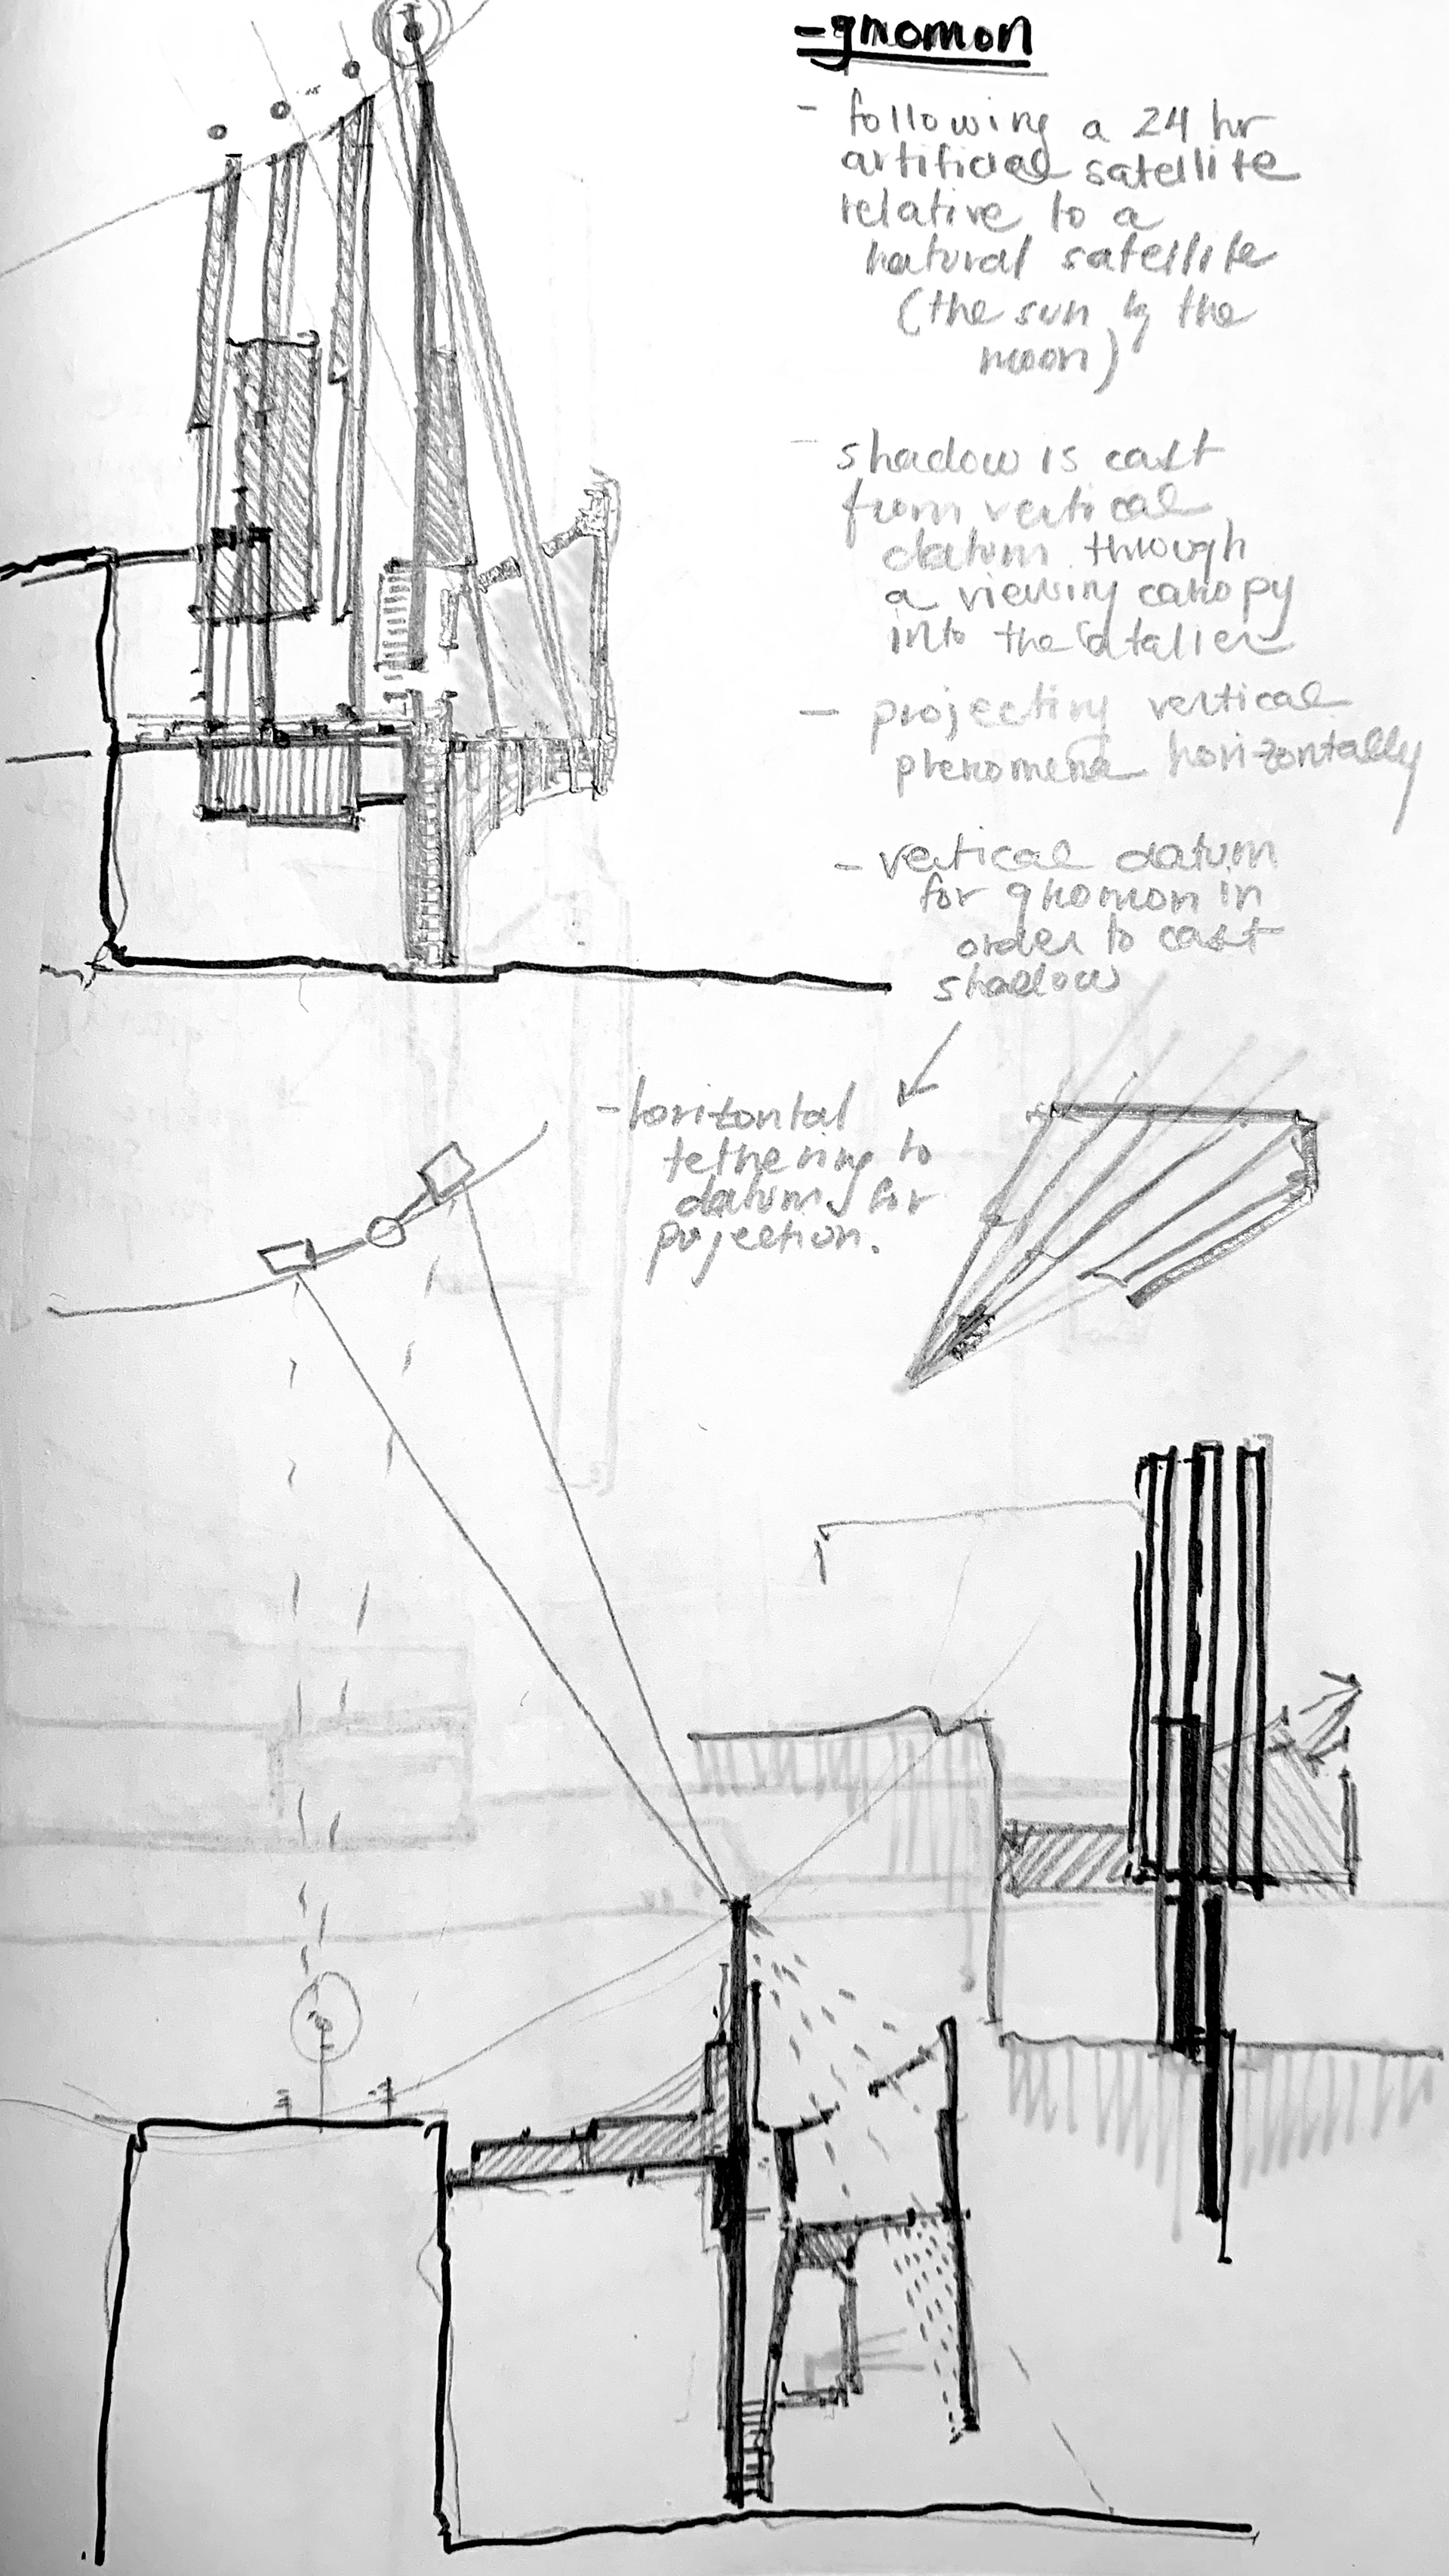 - gnomon
- following a 24 hr
artificial satellite
relative to a
natural satellite
(the sun by the
moon)
- shadow is cast
from vertical
datum through
a viewing canopy
into the atalier
- projecting vertical
phenomena horizontally
- vertical datum
for gnomon in
order to cast
shadow
- horizontal
tethering to
datum for
projection.